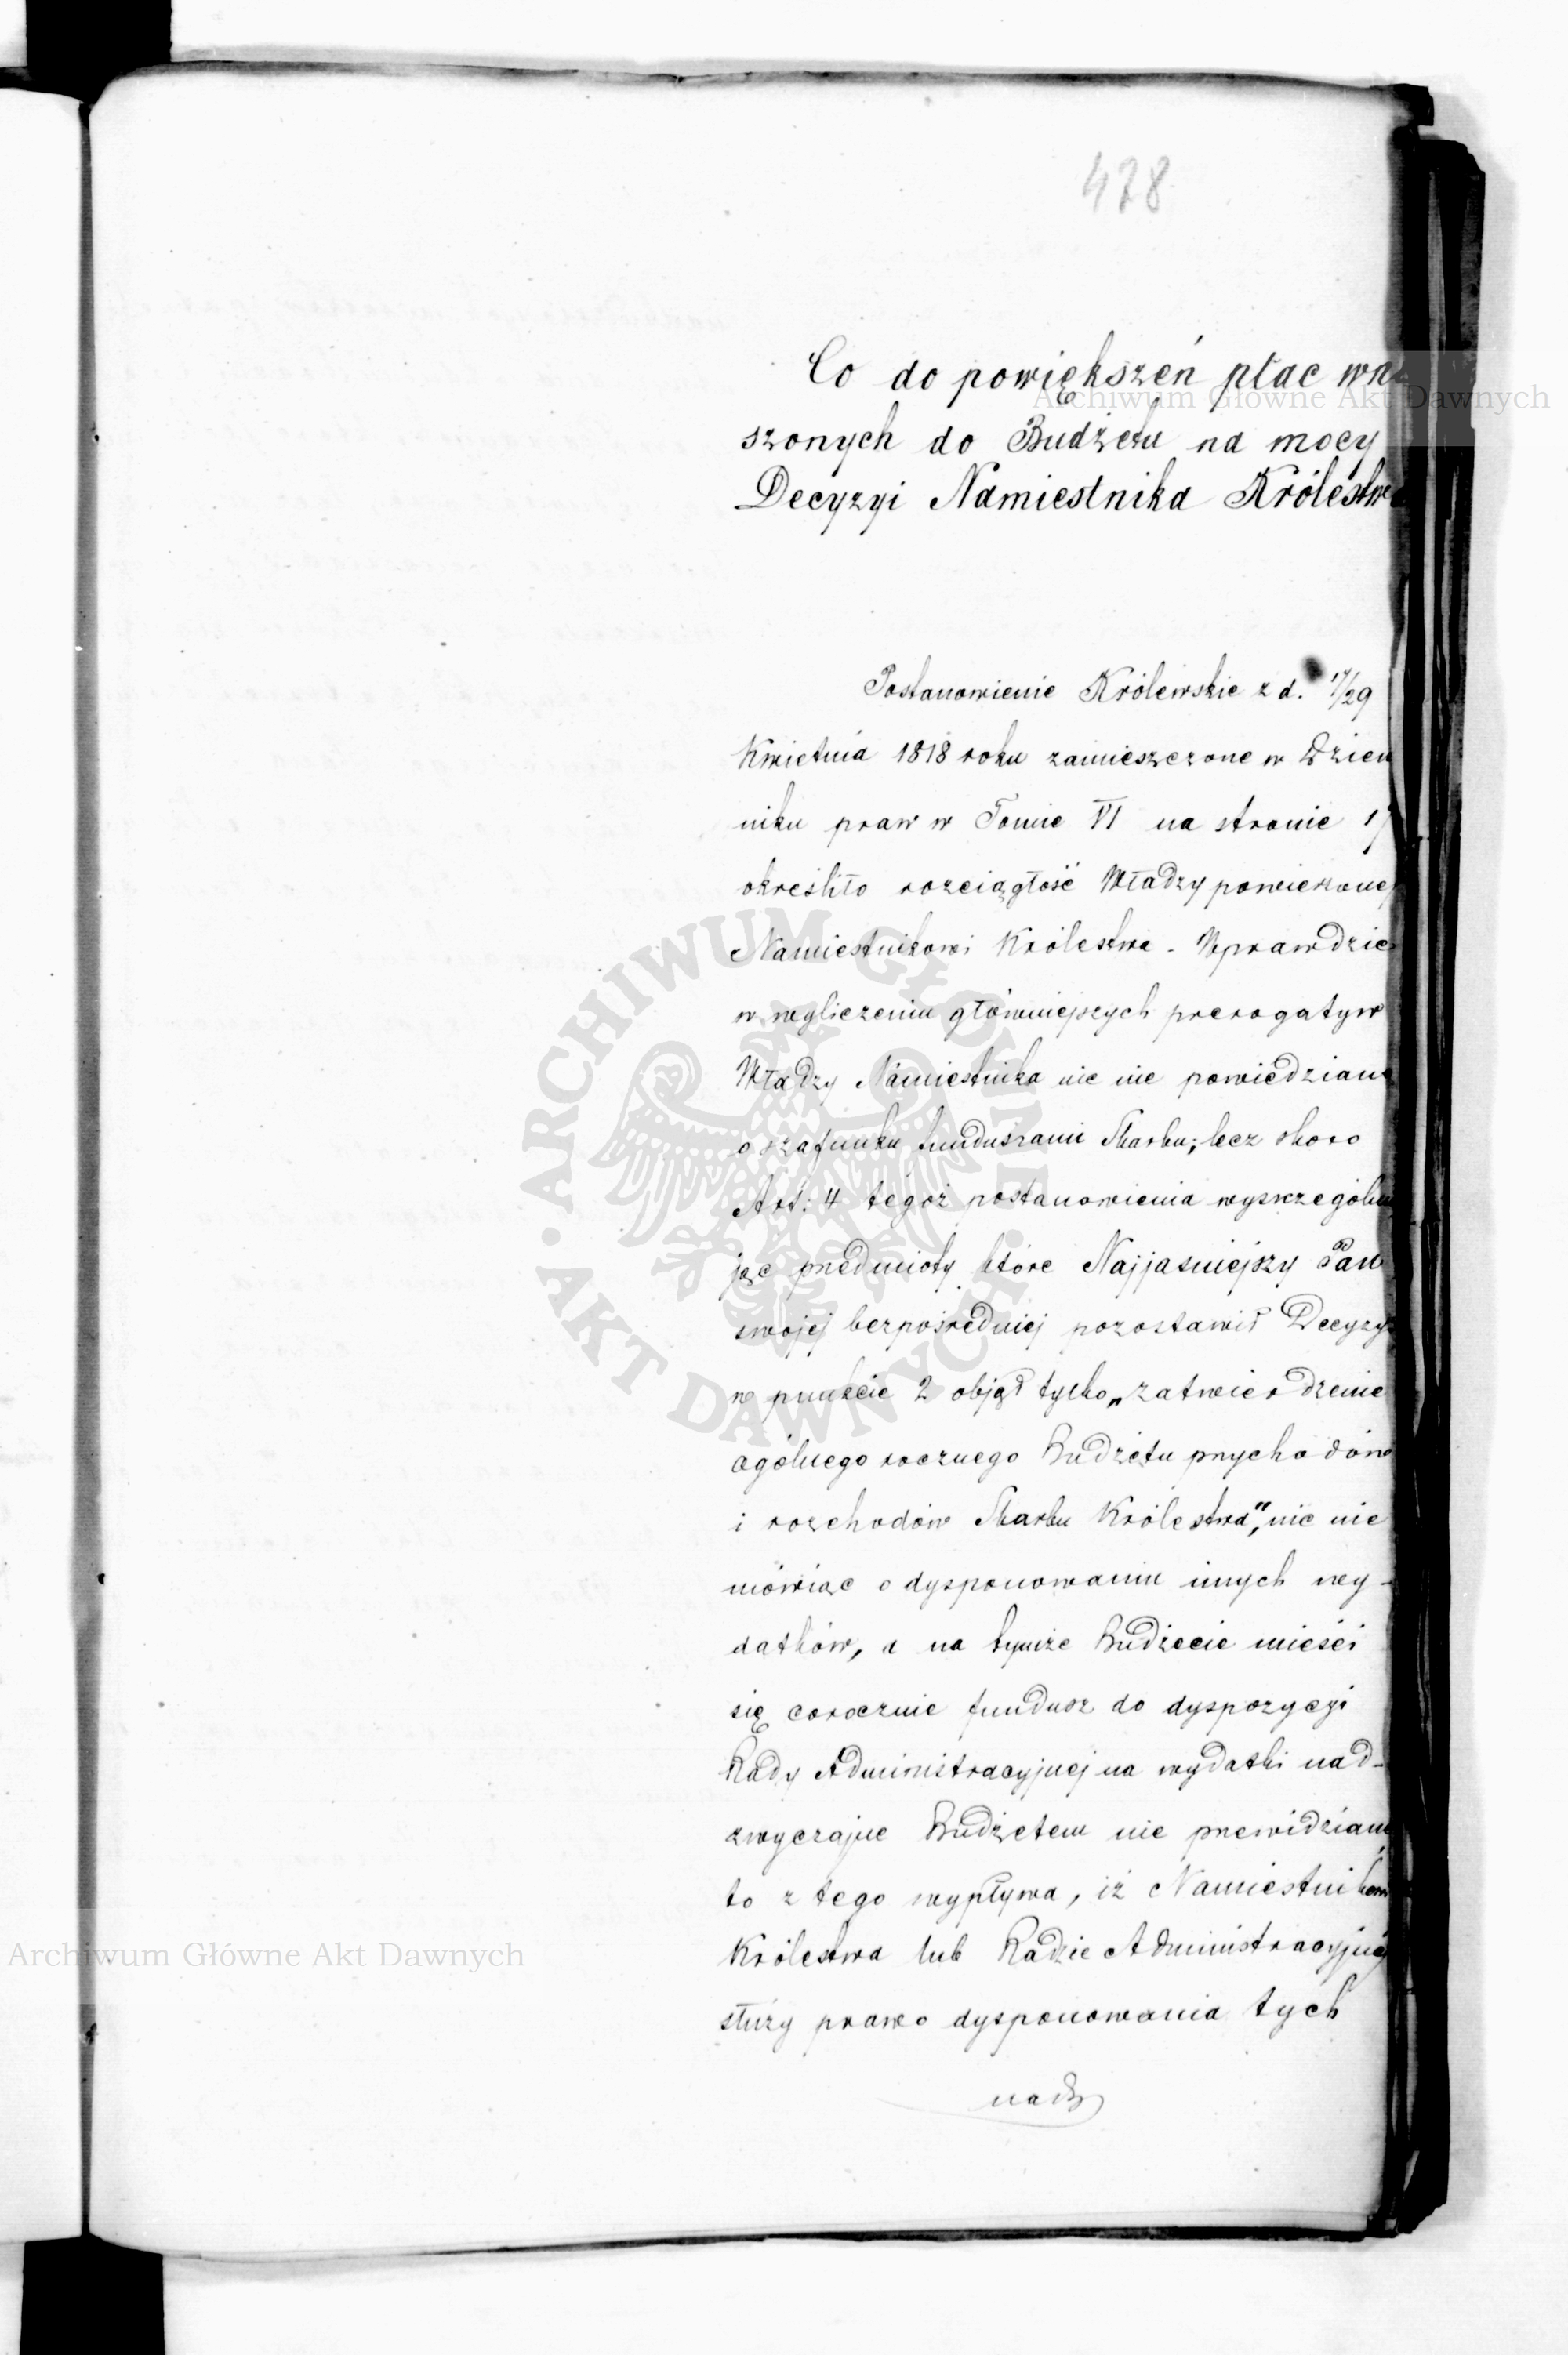 478
Co do powiększeń płac wnie
szonych do Budżetu na mocy
Decyzyi Namiestnika Królestwa
Postanowienie Królewskie z d. 17/29
Kwietnia 1818 roku zamieszczone w Dzien
niku praw w Tomie VI na stronie
określiło rozciągłość Władzy powierzonej
Namiestnikowi Królestwa - Wprawdzie
w wyliczeniu główniejszych prerogatyw
Władzy Namiestnika nic nie powiedziano
o szafunku funduszami Skarbu; lecz skoro
Art: 4 tegoż postanowienia wyszczególnia
jąc przedmioty które Najjaśniejszy Pan
swojej bezpośredniej pozostawił Decyzyi
w punkcie 2 objął tylko „zatwierdzenie
ogólnego rocznego Budżetu przychodów
i rozchodów Skarbu Królestwa", nic nie
mówiąc o dysponowaniu innych wy-
datków, a na tymże Budżecie mieści
się corocznie fundusz do dyspozycji
Rady Administracyjnej na wydatki nad-
zwyczajne Budżetem nie przewidziane
to z tego wypływa, iż Namiestnikowi
Królestwa lub Radzie Administracyjnej
służy prawo dysponowania tych
nadz
Archiwum Główne Akt Dawnych
· ARCHIWUM GŁÓWNE · AKT DAWNYCH
Archiwum Główne Akt Dawnych